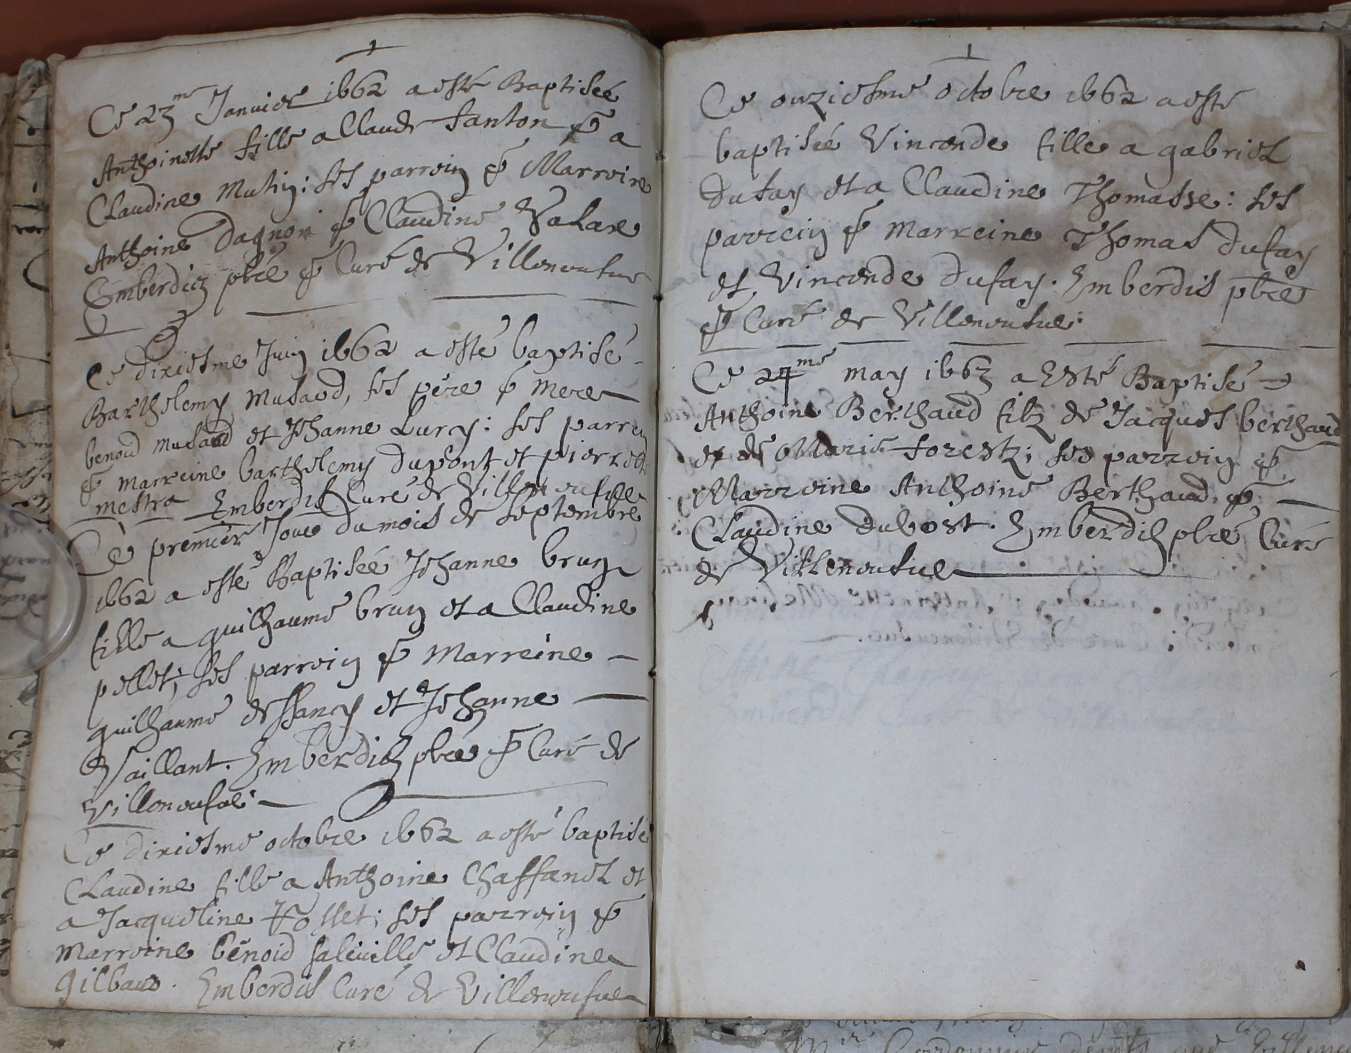 Ce 23me Janvier 1662 a esté Baptisée
Anthoinette fille a Claude fanton & a
Claudine Mutin: ses parrein & Marreine
Anthoine Dagnon & Claudine
Emberdis pbre & Curé de Villeneufve
Ce dixiesme Juin 1662 a esté baptisé
Barthelemy Musard, ses père & mere
benoid Musard et Jehanne Lurcy: ses parrein
& marreine barthelemy Dupont et pierrette
mestra Emberdis Curé de Villeneufve
Ce premier Jour du mois de septembre
1662 a esté Baptisée Jehanne brun
fille a guilhaume brun et a Claudine
pellet; ses parrein & Marreine
guilhaume deffancy et Jehanne
Vaillant. Emberdis pbre & Curé de
Villeneufve
Ce dixiesme octobre 1662 a esté baptisé
Claudine fille a Anthoine Chaffanel et
a Jacqueline follet; ses parrein &
Marreine benoid et Claudine
gilbaud. Emberdis Curé de Villeneufve
Ce onziesme octobre 1662 a esté
baptisée Vincende fille a gabriel
Dufay et a Claudine Thomasse: ses
parrein & Marreine Thomas dufay
et Vincende Dufay. Emberdis pbre
& Curé de Villeneufve.
Ce 24me may 1663 a Esté Baptisé
Anthoine Berthaud filz de Jacques berthaud
et de Marie forestz; ses parrein &
Marreine Anthoine Berthaud, &
Claudine dubost. Emberdis pbre Curé
de Villeneufve